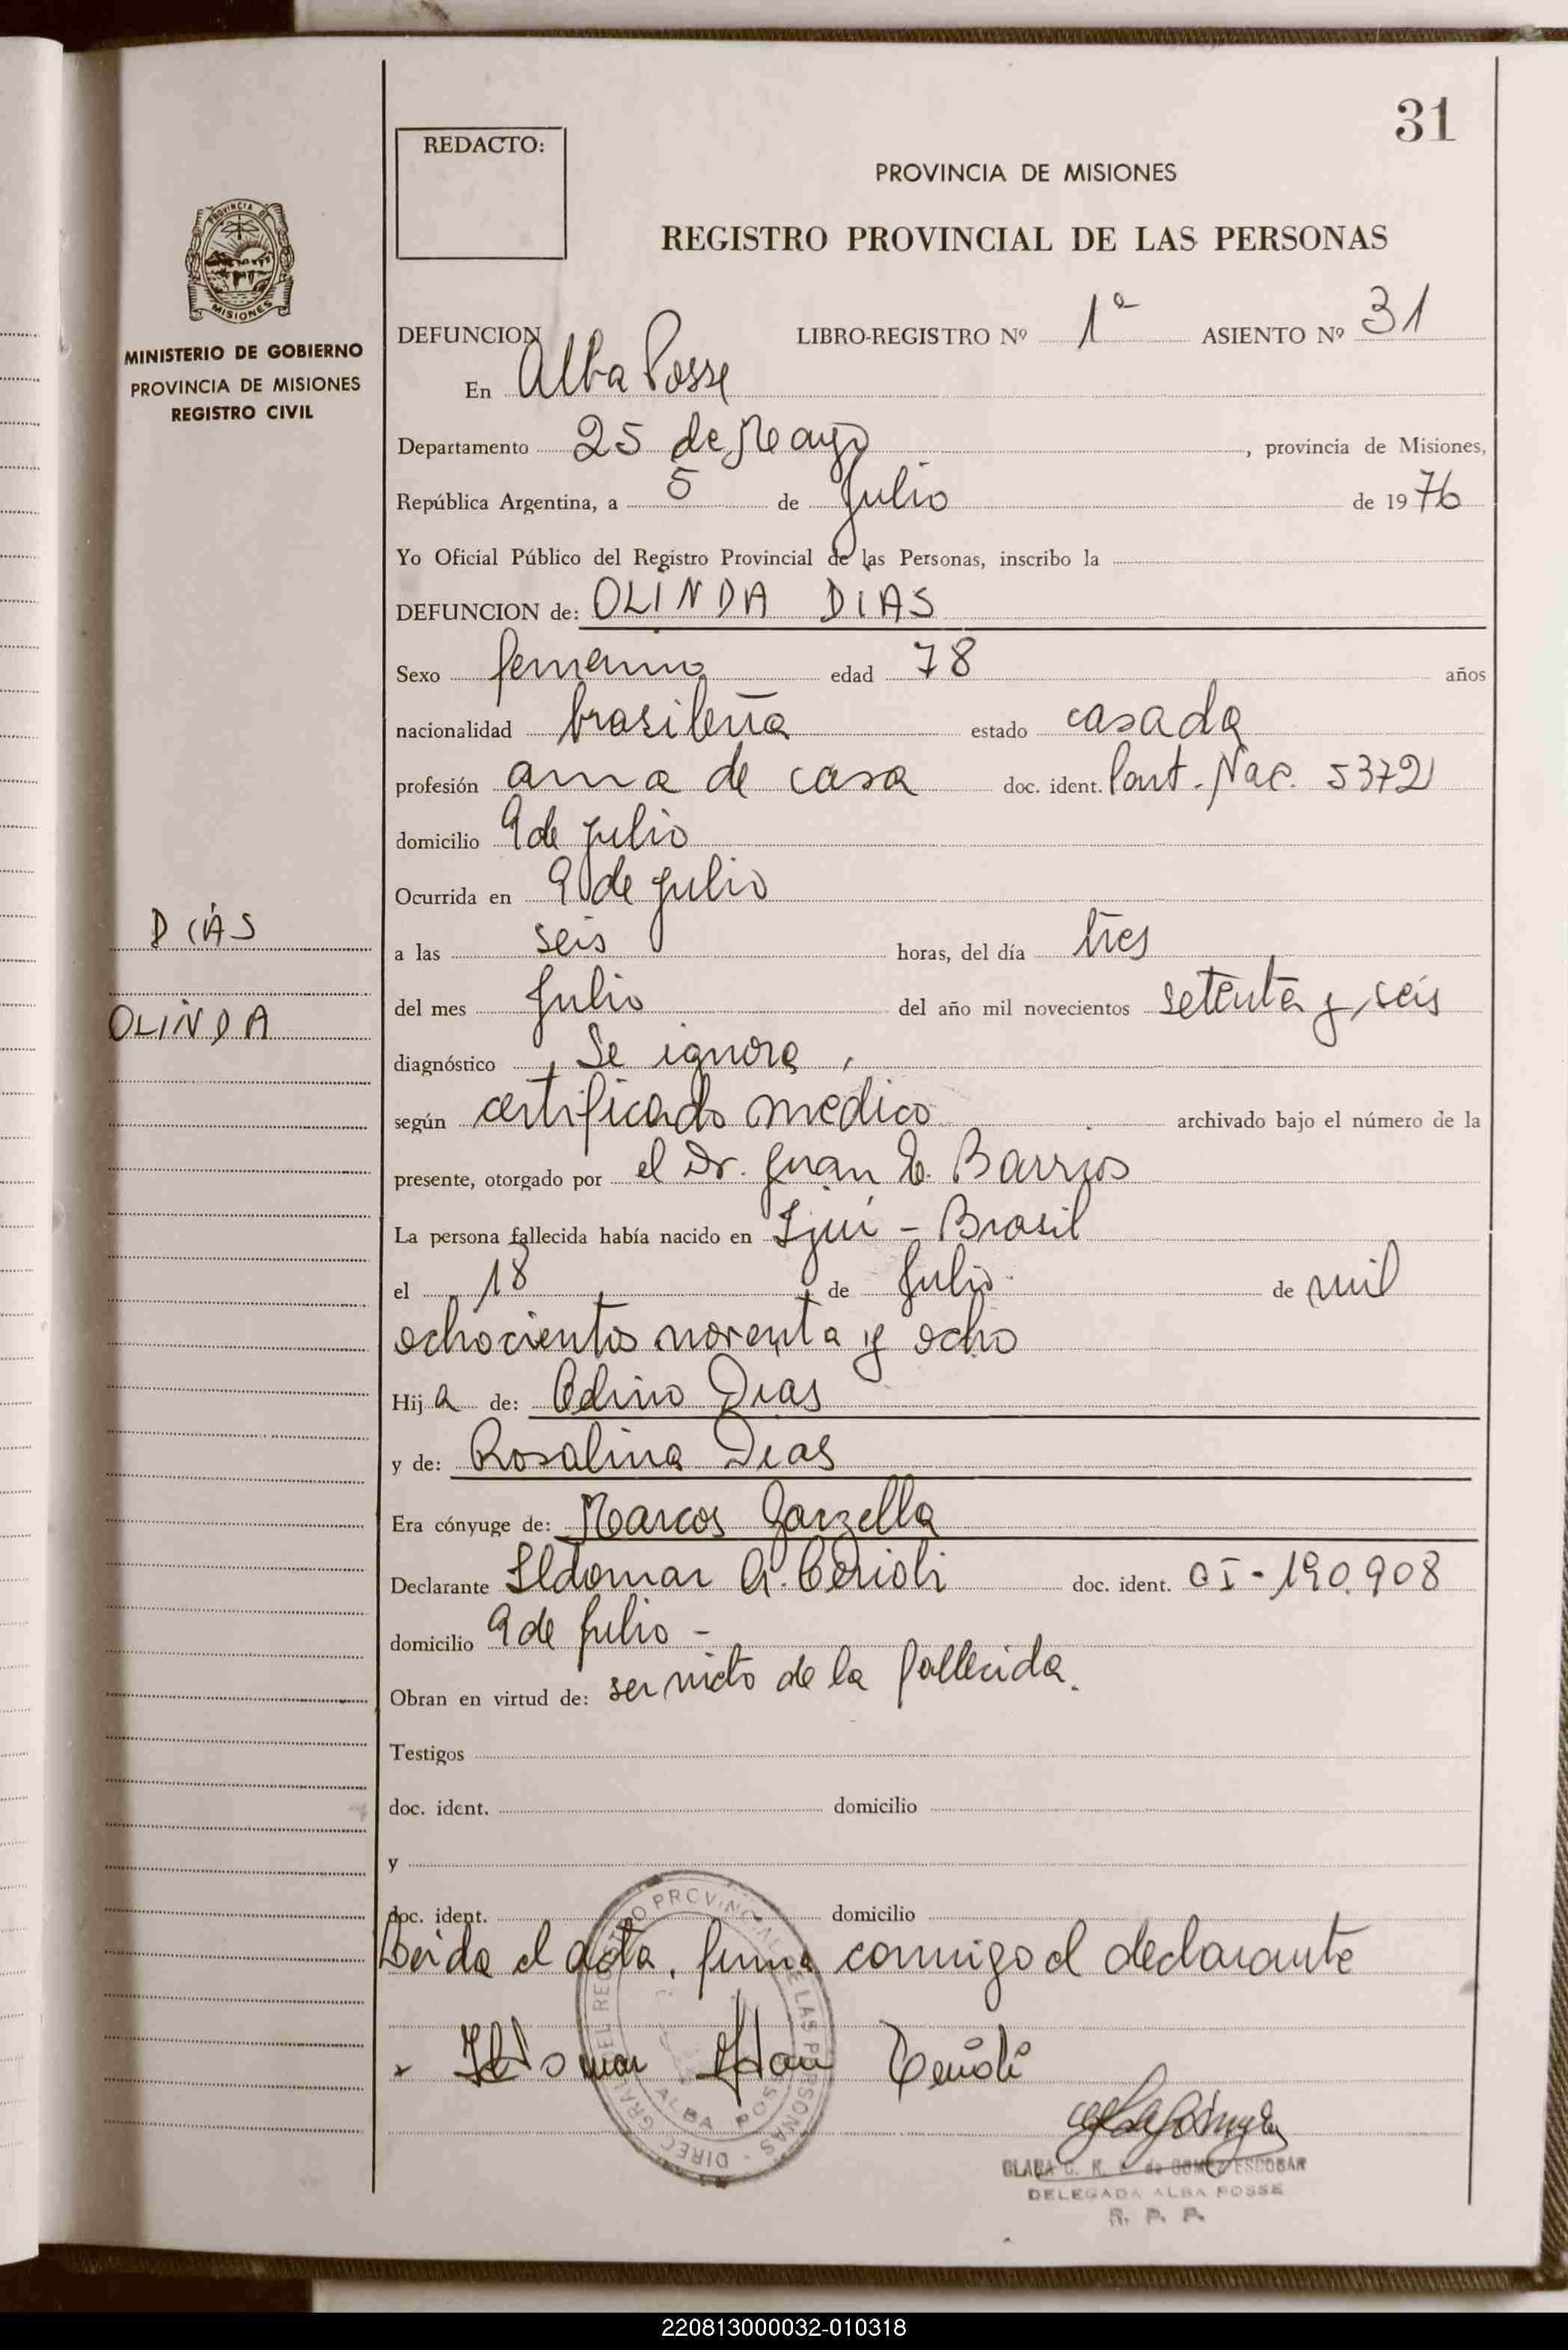 31
REDACTO:
PROVINCIA DE MISIONES
REGISTRO PROVINCIAL DE LAS PERSONAS
PROVINCIA DE
MISIONES
MINISTERIO DE GOBIERNO
PROVINCIA DE MISIONES
REGISTRO CIVIL
DEFUNCION LIBRO-REGISTRO Nº 1ª ASIENTO Nº 31
En Alba Posse
Departamento 25 de Mayo, provincia de Misiones,
República Argentina, a 5 de Julio de 1976
Yo Oficial Público del Registro Provincial de las Personas, inscribo la
DEFUNCION de: OLINDA DIAS
Sexo femenino edad 78 años
nacionalidad brasileña estado casada
profesión ama de casa doc. ident. Nac. 5372
domicilio 9 de julio
Ocurrida en 9 de julio
DIAS
a las seis horas, del día tres
OLINDA
del mes Julio del año mil novecientos setenta y seis
diagnóstico Se ignora
según certificado médico archivado bajo el número de la
presente, otorgado por el Dr. Juan E. Barrios
La persona fallecida había nacido en Ijuí - Brasil
el 18 de Julio de mil
ochocientos noventa y ocho
Hija de: Dias
y de: Rosalina Dias
Era cónyuge de: Marcos Garzella
Declarante Ildomar A. doc. ident. CI-190.908
domicilio 9 de Julio -
Obran en virtud de: ser nieto de la fallecida.
Testigos
doc. ident. domicilio
y
doc. ident. domicilio
Leida el acta, firma conmigo el declarante
Ildomar Adan
DIREC GRAL DEL REGISTRO PROVINCIAL DE LAS PERSONAS -
ALBA POSSE
GOMEZ ESCOBAR
DELEGADA ALBA POSSE
R. P. P.
220813000032-010318